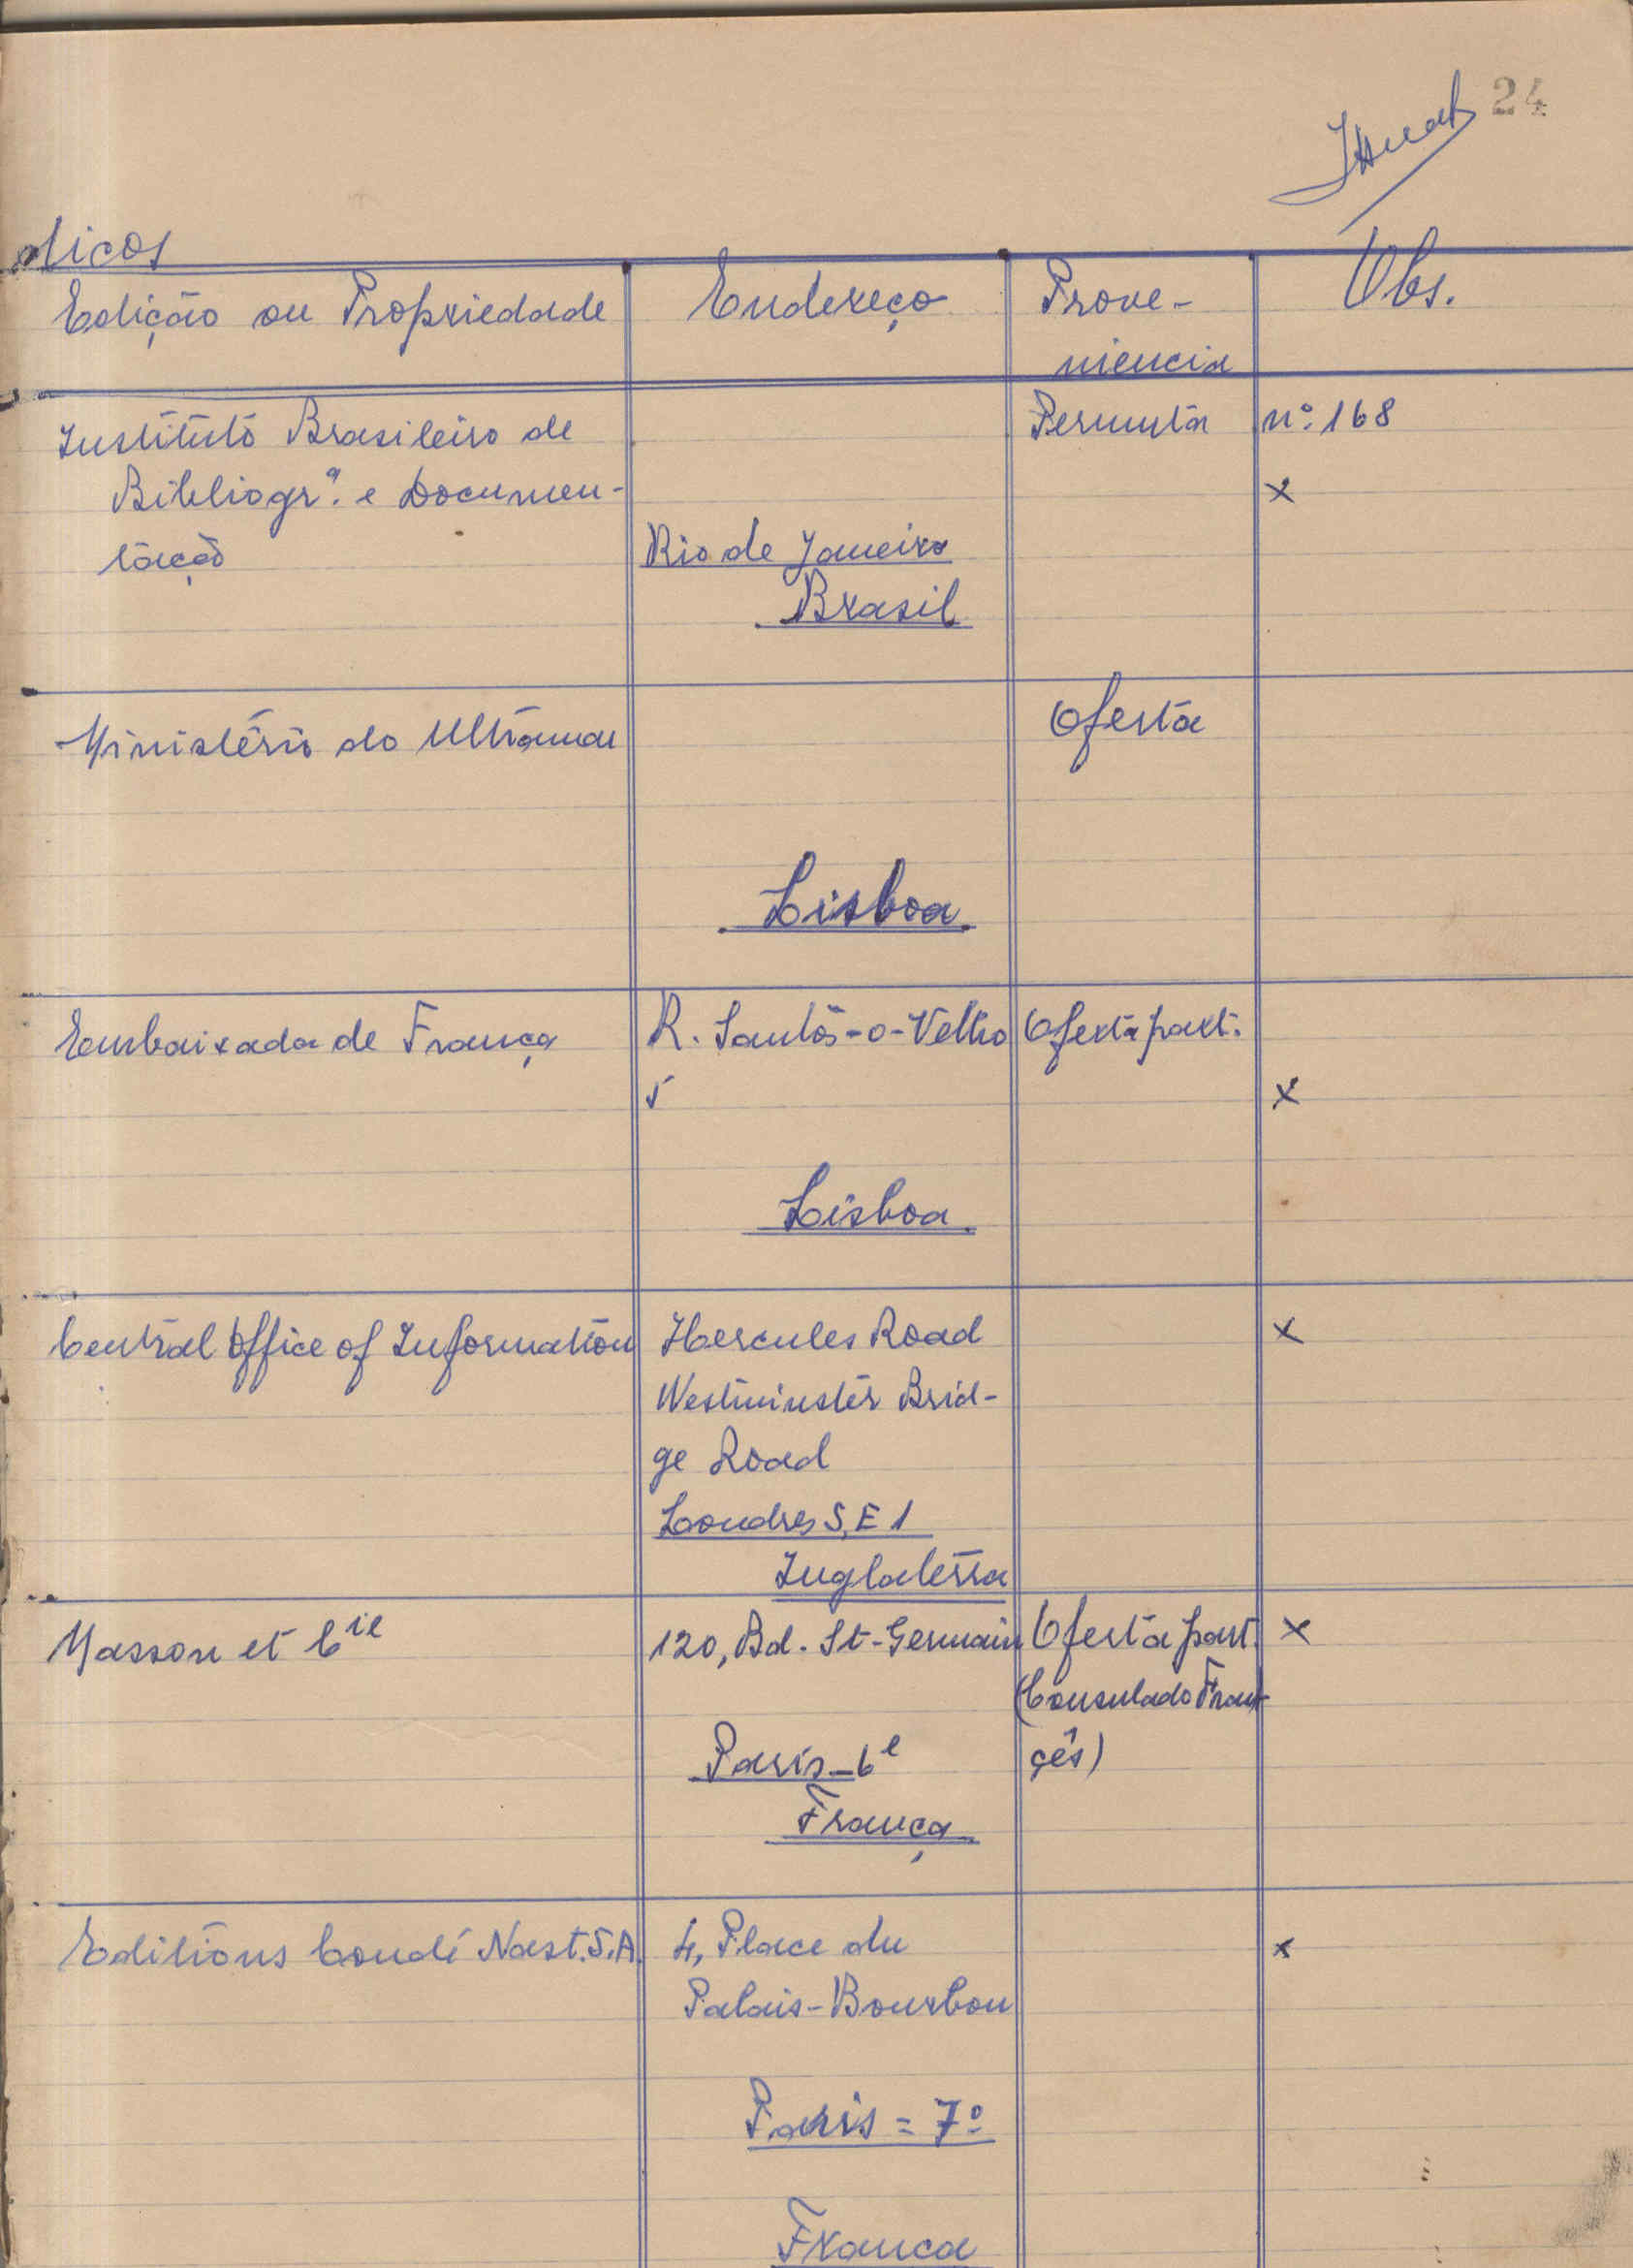 24
dicos
Edição ou Propriedade Endereço Prove-
niencia Obs.
Instituto Brasileiro de Permuta nº 168
Bibliogrª. e Documen- x
tação Rio de Janeiro
Brasil
Ministério do Ultramar Oferta
Lisboa
Embaixada de França R. Santos-o-Velho Oferta part.
5 x
Lisboa
Central Office of Information Hercules Road x
Westminster Brid-
ge Road
Londres S.E 1
Inglaterra
Masson et Cie 120, Bd. St-Germain Oferta part. x
(Consulado Fran-
Paris-6e çês)
França
Editions Condé Nast. S.A. 4, Place du x
Palais-Bourbon
Paris = 7º
França